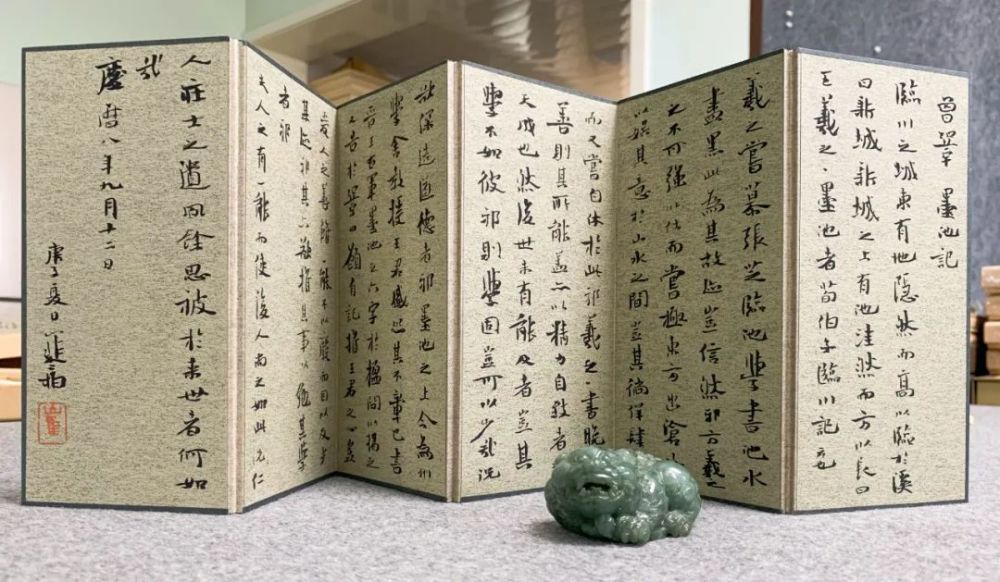 曾鞏 墨池記
臨川之城東有地隱然而高以臨於溪
曰新城新城之上有池洼然而方以長曰
王羲之墨池者荀伯子臨川記云也
羲之嘗慕張芝臨池學書池水
盡黑此為其故跡豈信然邪方羲之
之不可強以仕而嘗極東方出滄
以娛其意於山水之間豈其徜徉肆
而又嘗自休於此邪羲之之書晚
善則其所能蓋亦以精力自致者
天成也然後世未有能及者豈其
學不如彼邪則學固豈可以少哉況
欲深造道德者邪墨池之上今為州
學舍教授王君盛恐其不章也書
晉王右軍墨池之六字於楹間以揭之
又告於鞏曰願有記推王君之心豈
愛人之善雖一能不以廢而因以及乎
其跡邪其亦欲推其事以勉其學
者邪
夫人之有一能而使後人尚之如此況仁
人莊士之遺風餘思被於來世者何如
哉
慶曆八年九月十二日
庚子夏日